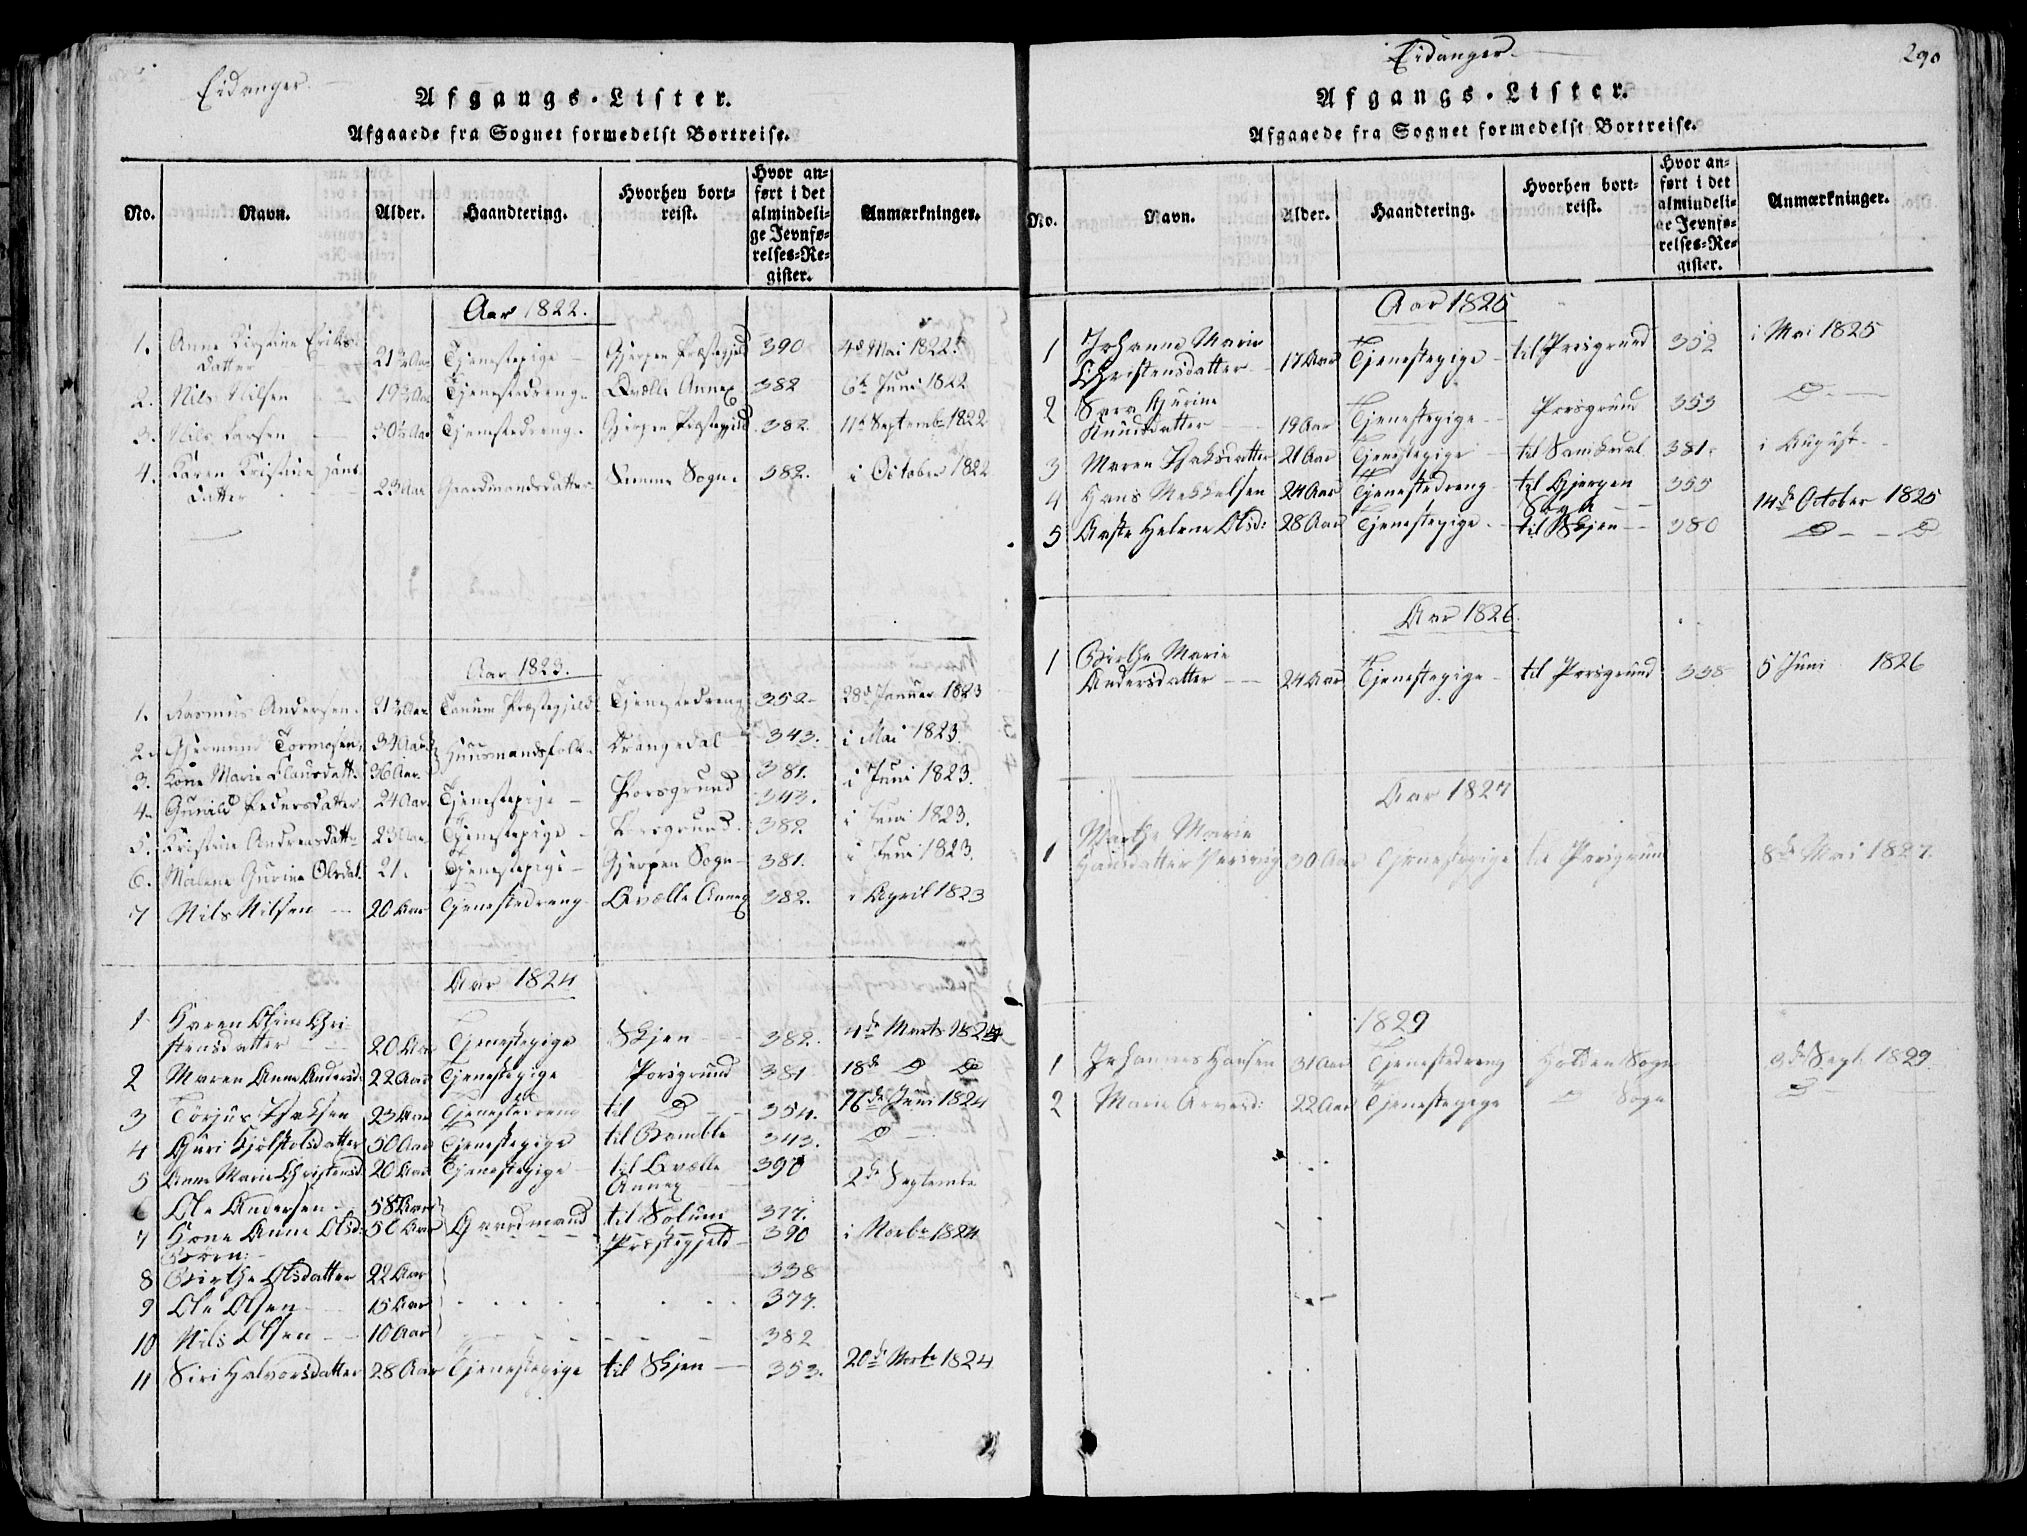 Eidanger.
Afgangs-Lister.
Afgaaede fra Sognet formedelst Bortreise.
No. Navn. Alder. Haandtering. Hvorhen bortreist. Hvor anført i det almindelige Jevnførelses-Register. Anmærkninger.
Aar 1822.
1. Anne Kirstine Eriksdatter 21½ Aar Tjenestepige Gjerpen Præstegjeld 390 4de Mai 1822
2. Nils Nilsen 19½ Aar Tjenestedreng Qvælle Annex 382 6te Juni 1822
3. Nils Larsen 30½ Aar Tjenestedreng Gjerpen Præstegjeld 382. 11te Septembr 1822
4. Karen Kristine Hansdatter 23 Aar Gaardmandsdatter Sogn 382. i October 1822
Aar 1823.
1. Rasmus Andersen 21½ Aar Tanum Præstegjeld Tjenestedreng 352 28de Januar 1823
2. Gjermund Tormosen 34 Aar Huusmandsfolk Drangedal 343. i Mai 1823.
3. Kone Marie Clausdatt. 36 Aar 381.
4. Gunild Pedersdatter 24 Aar Tjenestepige Porsgrund 343. i Juni 1823.
5. Kristine Andreasdattr 23 Aar Tjenestepige Porsgrund 382. i Juni 1823.
6. Malene Gurine Olsdat. 21. Tjenestepige Gjerpen Sogn 381. i Juni 1823.
7 Nils Nilsen 20 Aar Tjenestedreng Qvælle Annex 382. i April 1823
Aar 1824
1 Karen Oline Christensdatter 20 Aar Tjenestepige Skjen 382. 4de Marts 1824
2 Maren Anne Andersd. 22 Aar Tjenestepige Porsgrund 381 18de D D
3 Torjus Isaksen 23 Aar Tjenestedreng til D 354. 16de Juni 1824
4 Guri Kjølstolsdatter 50 Aar Tjenestepige til Bamble 343. D
5 Anne Marie Christensd. 20 Aar Tjenestepige til Qvælle Annex 390 2de Septembr
6 Ole Andersen 58 Aar Gaardmand til Solum Præstegjeld 377.
7 Kone Anne Olsd: 50 Aar 390 i Novbr 1824
Børn:
8 Birthe Olsdatter 22 Aar 338
9 Ole Olsen 15 Aar 377.
10 Nils Olsen 10 Aar 382
11 Siri Halvorsdatter 28 Aar Tjenestepige til Skjen 353. 20de 1824
Eidanger. 290
Afgangs-Lister.
Afgaaede fra Sognet formedelst Bortreise.
No. Navn. Alder. Haandtering. Hvorhen bortreist. Hvor anført i det almindelige Jevnførelses-Register. Anmærkninger.
Aar 1825
1 Johanne Marie Christensdatter 17 Aar Tjenestepige til Porsgrund 352 i Mai 1825
2 Sara Gurine Knudsdatter 19 Aar Tjenestepige Porsgrund 353 D
3 Maren Isaksdatter 21 Aar Tjenestepige til Sannikedal 381. i August
4 Hans Mekkelsen 24 Aar Tjenestedreng til Gjerpen Sogn 355 14de October 1825
5 Aaste Helene Olsd: 28 Aar Tjenestepige til Skjen 380 D D
Aar 1826.
1 Birthe Marie Andersdatter 24 Aar Tjenestepige til Porsgrund 338 5 Juni 1826
Aar 1827
1 Marthe Marie Hansdatter 30 Aar Tjenestepige til Porsgrund 8de Mai 1827.
1829
1 Johannes Hansen 31 Aar Tjenestedreng Holden Sogn 9de Sept. 1829.
2 Marie 22 Aar Tjenestepige D Sogn D